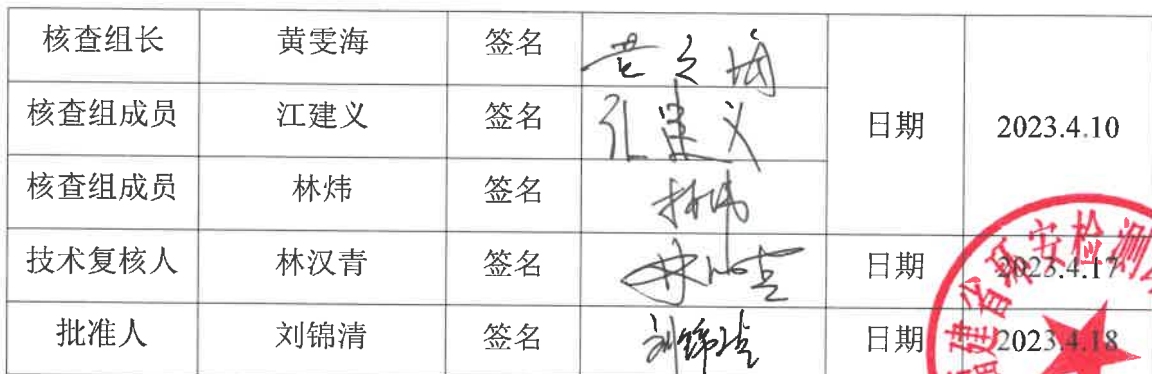 核查组长 黄雯海 签名 黄文海
核查组成员 江建义 签名 江建义 日期 2023.4.10
核查组成员 林炜 签名 林炜
技术复核人 林汉青 签名 林汉青 日期 2023.4.17
批准人 刘锦清 签名 刘锦清 日期 2023.4.18
建省环安检测